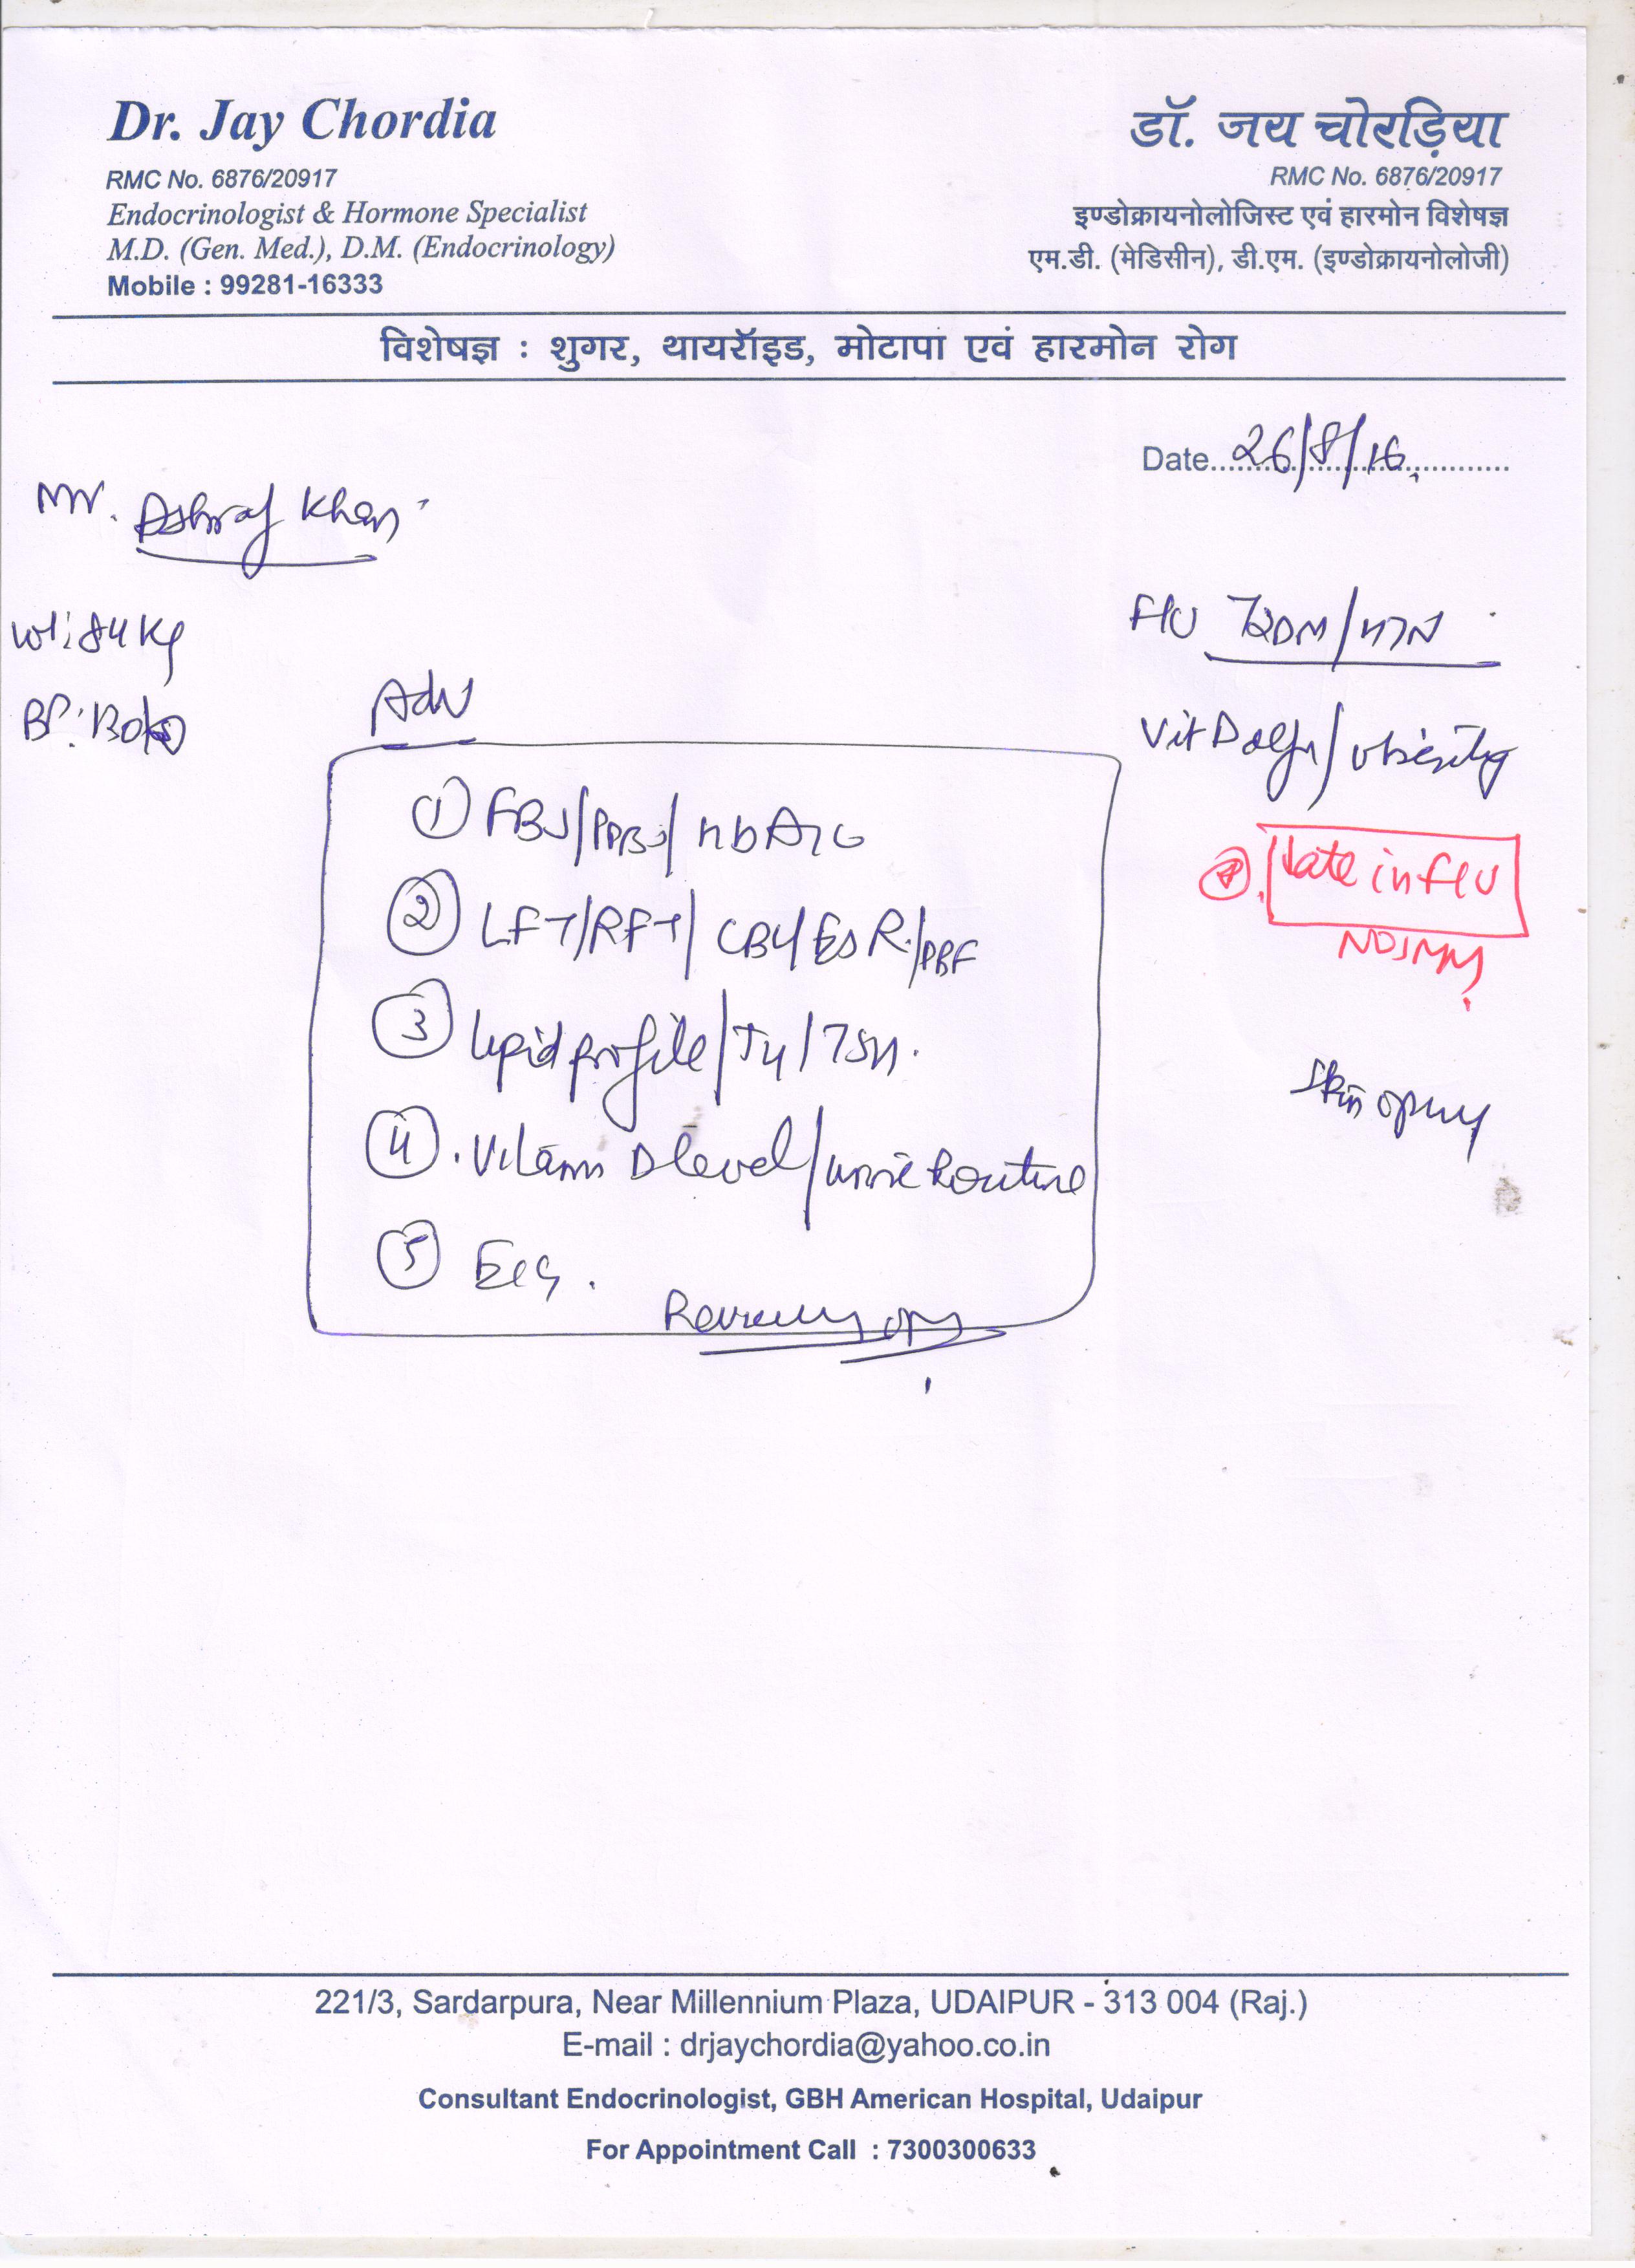 Dr. Jay Chordia
RMC No. 6876/20917
Endocrinologist & Hormone Specialist
M.D. (Gen. Med.), D.M. (Endocrinology)
Mobile : 99281-16333
डॉ. जय चोरड़िया
RMC No. 6876/20917
इण्डोक्रायनोलोजिस्ट एवं हारमोन विशेषज्ञ
एम.डी. (मेडिसीन), डी.एम. (इण्डोक्रायनोलोजी)
विशेषज्ञ : शुगर, थायरॉइड, मोटापा एवं हारमोन रोग
Date 26/8/16
Mr. Ashraf Khan
Wt: 84 Kg
BP:
F/U T2DM/HTN
Vit D /Obesity
Late in F/U
Skin
Adv
① FBS/PPBS/HbA1C
② LFT/RFT/CBC/ESR/PBF
③ Lipid profile/T4/TSH.
④. Vitamin D level/urine Routine
⑤ ECG.
221/3, Sardarpura, Near Millennium Plaza, UDAIPUR - 313 004 (Raj.)
E-mail : drjaychordia@yahoo.co.in
Consultant Endocrinologist, GBH American Hospital, Udaipur
For Appointment Call : 7300300633